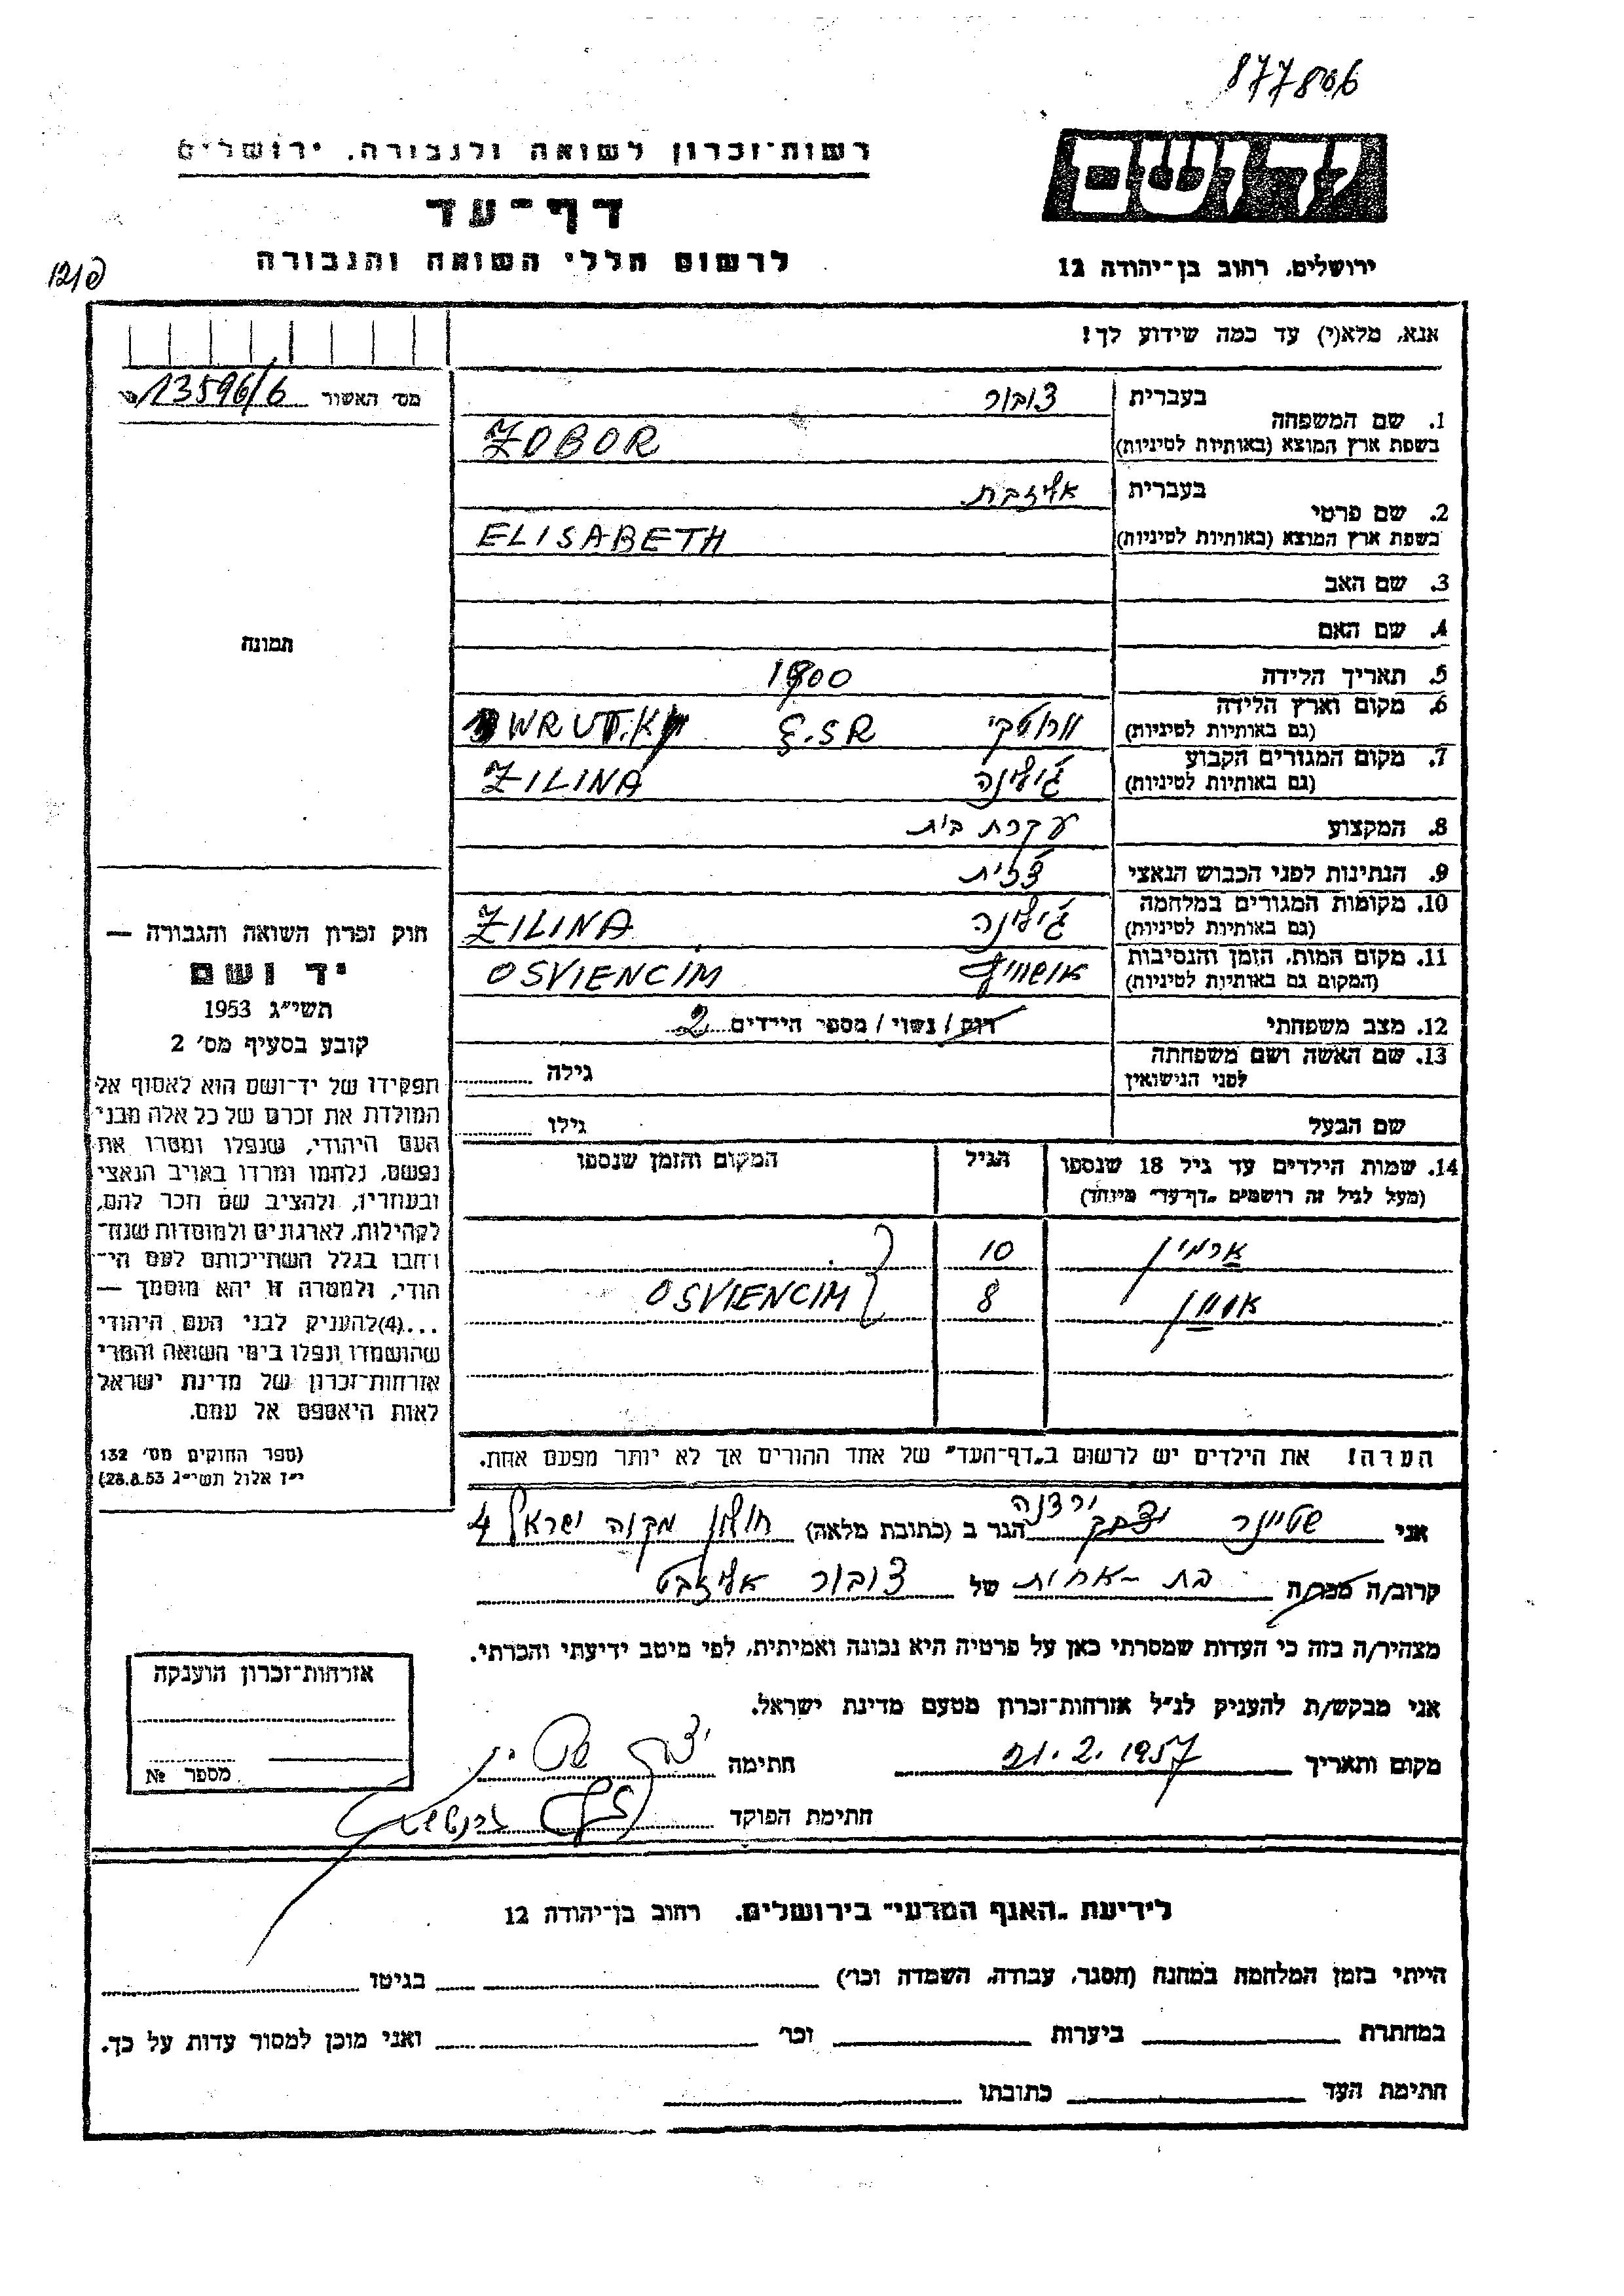 877806
רשות־זכרון לשואה ולגבורה, ירושלים
יד ושם
דף־עד
לרשום חללי השואה והגבורה
ירושלים, רחוב בן־יהודה 12
אנא, מלא(י) עד כמה שידוע לך!
מס׳ האשור 13596/6
1. שם המשפחה בעברית צובור
בשפת ארץ המוצא (באותיות לטיניות) ZOBOR
2. שם פרטי בעברית אליזבת
בשפת ארץ המוצא (באותיות לטיניות) ELISABETH
3. שם האב
4. שם האם
תמונה
5. תאריך הלידה 1900
6. מקום וארץ הלידה
(גם באותיות לטיניות) וורוטקי Č.SR WRUTKY
7. מקום המגורים הקבוע
(גם באותיות לטיניות) ג׳ילינה ZILINA
8. המקצוע עקרת בית
9. הנתינות לפני הכבוש הנאצי צ׳כית
10. מקומות המגורים במלחמה
(גם באותיות לטיניות) ג׳ילינה ZILINA
11. מקום המות, הזמן והנסיבות
(המקום גם באותיות לטיניות) אושוויץ OSVIENCIM
12. מצב משפחתי רווק/נשוי/מספר הילדים 2
13. שם האשה ושם משפחתה
לפני הנישואין גילה
שם הבעל גילו
14. שמות הילדים עד גיל 18 שנספו
(מעל לגיל זה רושמים „דף־עד״ מיוחד) הגיל המקום והזמן שנספו
ארמין 10
8 OSVIENCIM
הערה! את הילדים יש לרשום ב„דף־העד״ של אחד ההורים אך לא יותר מפעם אחת.
חוק זכרון השואה והגבורה —
יד ושם
תשי״ג 1953
קובע בסעיף מס׳ 2
תפקידו של יד־ושם הוא לאסוף אל
המולדת את זכרם של כל אלה מבני
העם היהודי, שנפלו ומסרו את
נפשם, נלחמו ומרדו באויב הנאצי
ובעוזריו, ולהציב שם וזכר להם,
לקהילות, לארגונים ולמוסדות שנח־
רבו בגלל השתייכותם לעם הי־
הודי, ולמטרה זו יהא מוסמך —
...(4) להעניק לבני העם היהודי
שהושמדו ונפלו בימי השואה והמרי
אזרחות־זכרון של מדינת ישראל
לאות היאספם אל עמם.
(ספר החוקים מס׳ 132
י״ז אלול תשי״ג 28.8.53)
אני שטיינר ירדנה הגר ב (כתובת מלאה) חולון מקוה ישראל 4
קרוב/ה מכר/ה בת־אחות של צובור אליזבט
מצהיר/ה בזה כי העדות שמסרתי כאן על פרטיה היא נכונה ואמיתית, לפי מיטב ידיעתי והכרתי.
אני מבקש/ת להעניק לנ״ל אזרחות־זכרון מטעם מדינת ישראל.
מקום ותאריך 21.2.1957 חתימה
חתימת הפוקד
אזרחות־זכרון הוענקה
מספר №
לידיעת „האגף המדעי״ בירושלים, רחוב בן־יהודה 12
הייתי בזמן המלחמה במחנה (הסגר, עבודה, השמדה וכו׳) בגיטו
במחתרת ביערות וכו׳ ואני מוכן למסור עדות על כך.
חתימת העד כתובתו